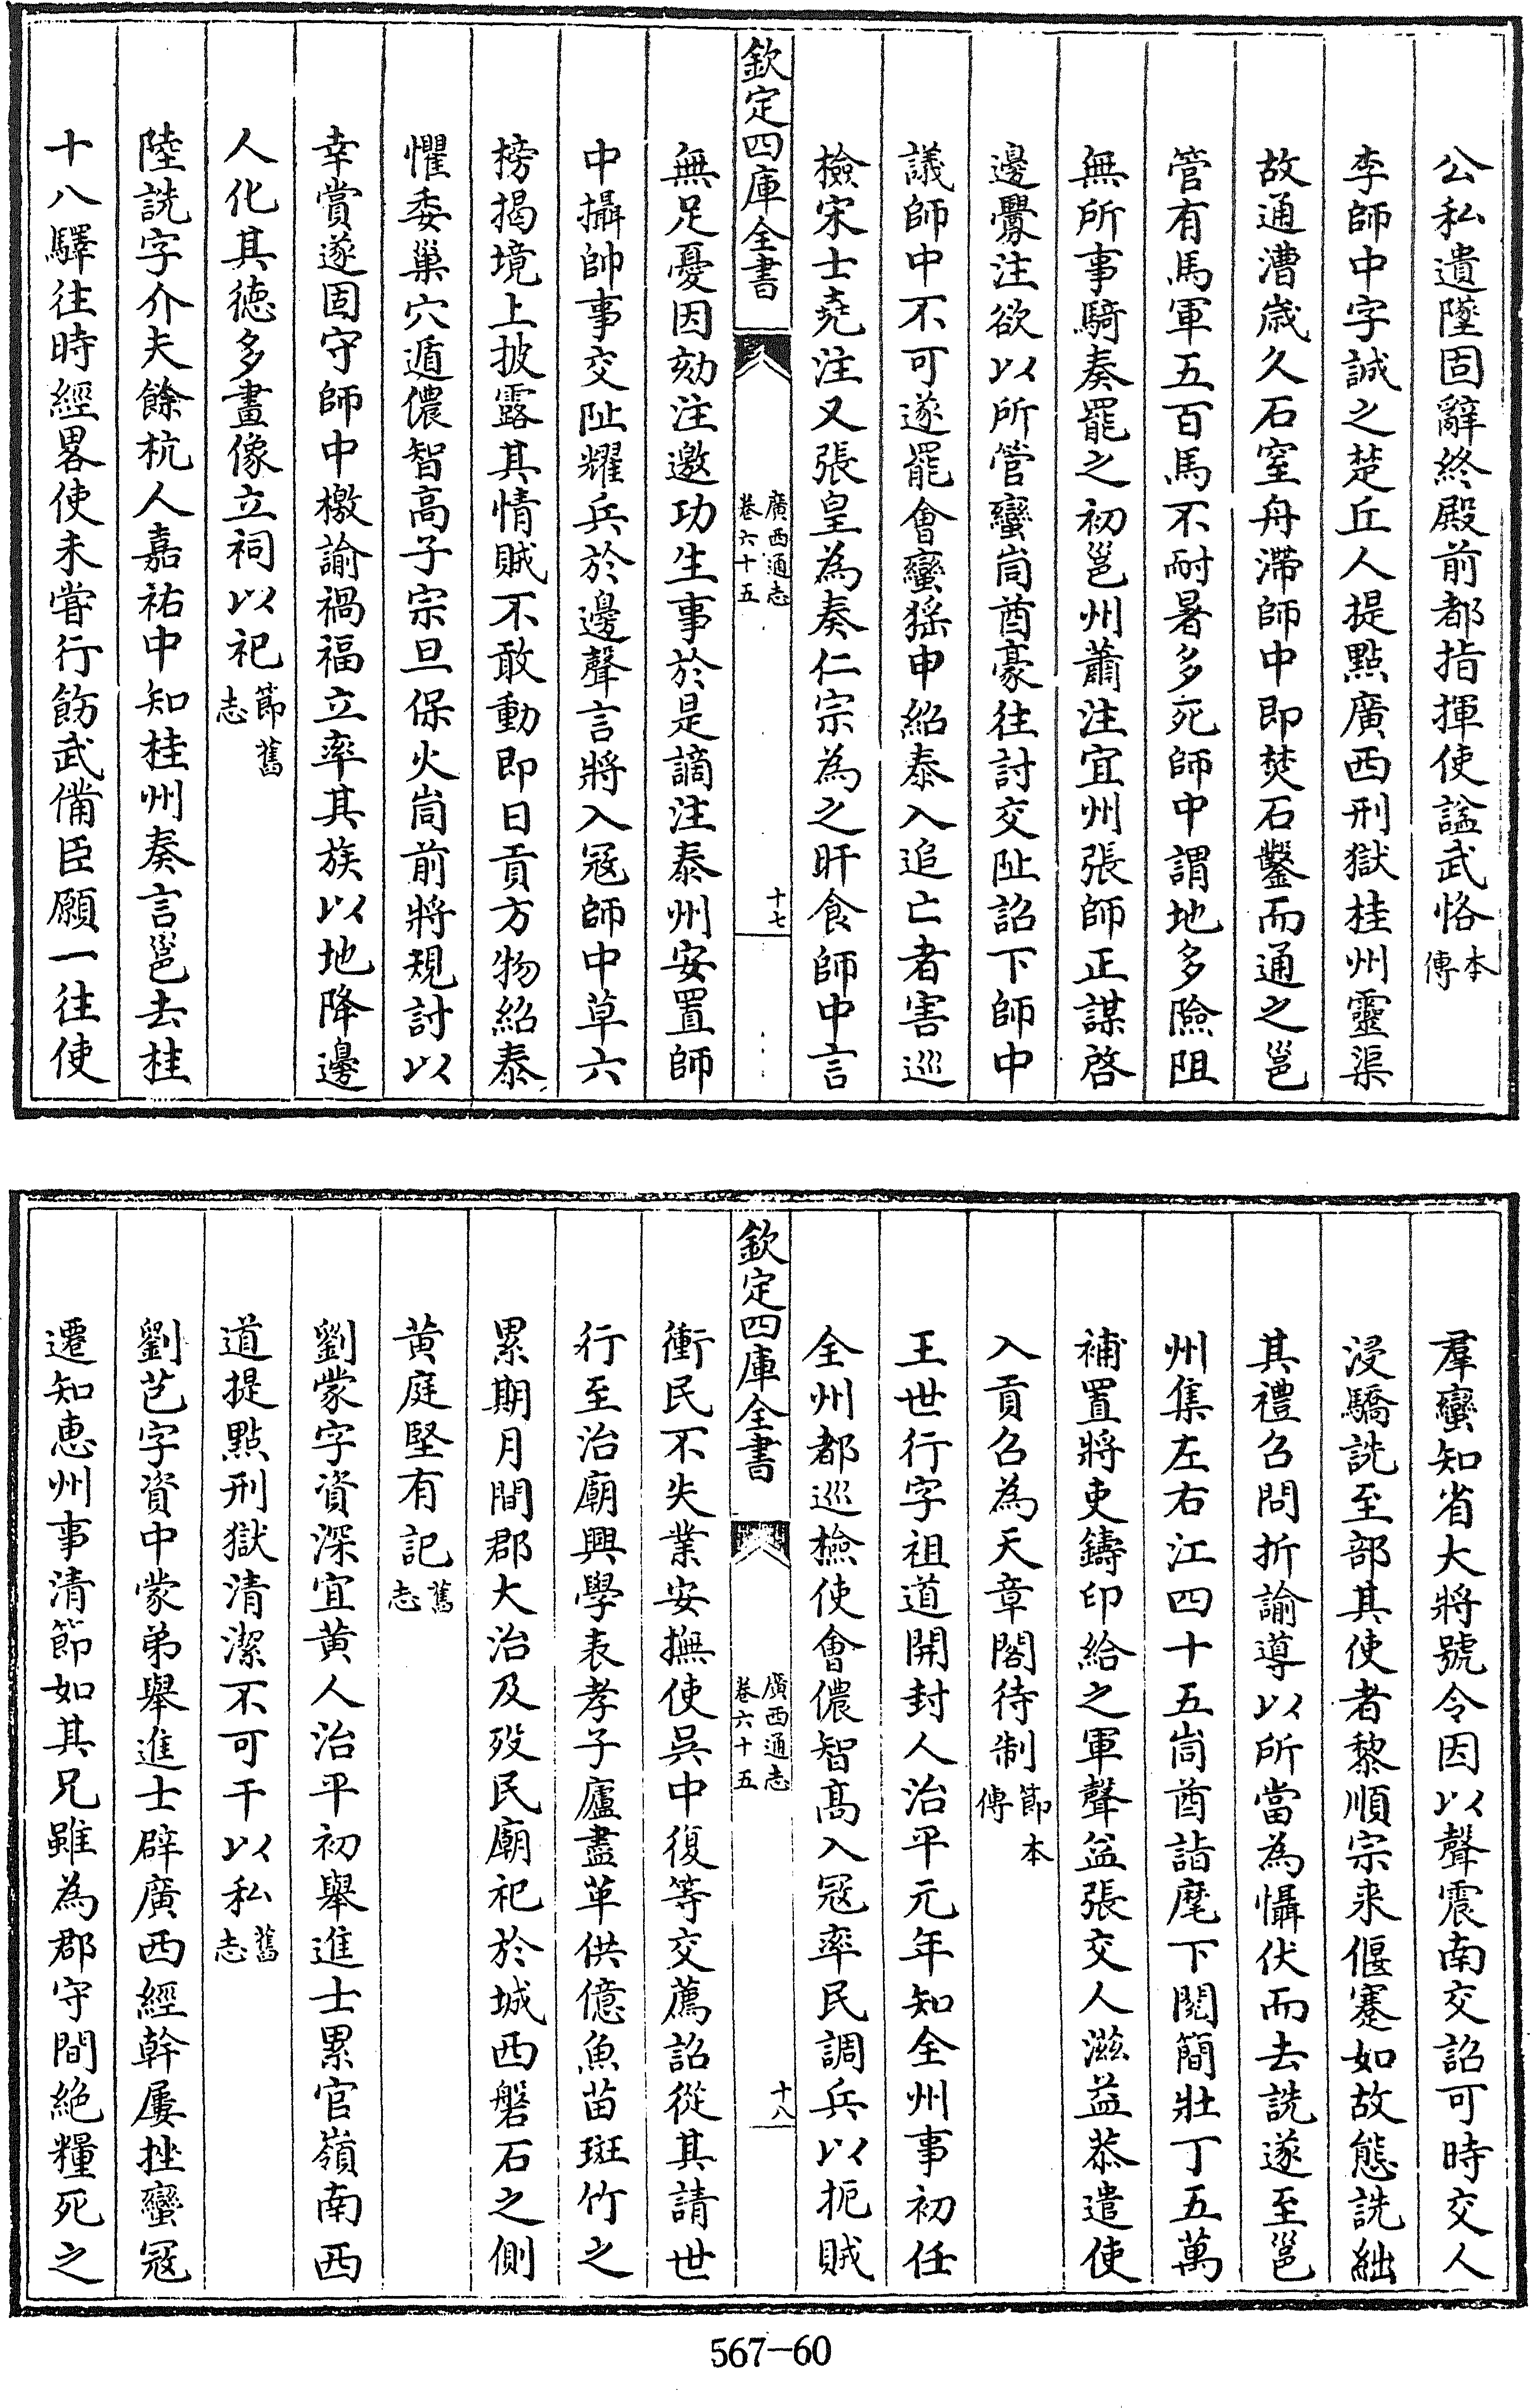 公私遺墜固辭終殿前都指揮使諡武恪本傳
李師中字誠之楚丘人提點廣西刑獄桂州靈渠
故通漕歲久石窒舟滯師中即焚石鑿而通之邕
管有馬軍五百馬不耐暑多死師中謂地多險阻
無所事騎奏罷之初邕州蕭注宜州張師正謀啓
邊釁注欲以所管蠻峝酋豪往討交阯詔下師中
議師中不可遂罷會蠻猺申紹泰入追亡者害巡
檢宋士堯注又張皇為奏仁宗為之旰食師中言
欽定四庫全書
廣西通志
卷六十五
十七
無足憂因劾注邀功生事於是謫注泰州安置師
中攝帥事交阯耀兵於邊聲言將入寇師中草六
榜揭境上披露其情賊不敢動即日貢方物紹泰
懼委巢穴遁儂智高子宗旦保火峝前將規討以
幸賞遂固守師中檄諭禍福立率其族以地降邊
人化其德多畫像立祠以祀節舊志
陸詵字介夫餘杭人嘉祐中知桂州奏言邕去桂
十八驛往時經畧使未嘗行飭武備臣願一往使
羣蠻知省大將號令因以聲震南交詔可時交人
浸驕詵至部其使者黎順宗來偃蹇如故態詵絀
其禮召問折諭導以所當為懾伏而去詵遂至邕
州集左右江四十五峝酋詣麾下閱簡壯丁五萬
補置將吏鑄印給之軍聲益張交人滋益恭遣使
入貢召為天章閣待制節本傳
王世行字祖道開封人治平元年知全州事初任
全州都巡檢使會儂智高入寇率民調兵以扼賊
欽定四庫全書
廣西通志
卷六十五
十八
衝民不失業安撫使吳中復等交薦詔從其請世
行至治廟興學表孝子廬盡革供億魚苗斑竹之
累期月間郡大治及歿民廟祀於城西磐石之側
黄庭堅有記舊志
劉蒙字資深宜黄人治平初舉進士累官嶺南西
道提點刑獄清潔不可干以私舊志
劉芑字資中蒙弟舉進士辟廣西經幹屢挫蠻寇
遷知惠州事清節如其兄雖為郡守間絶糧死之
567—60